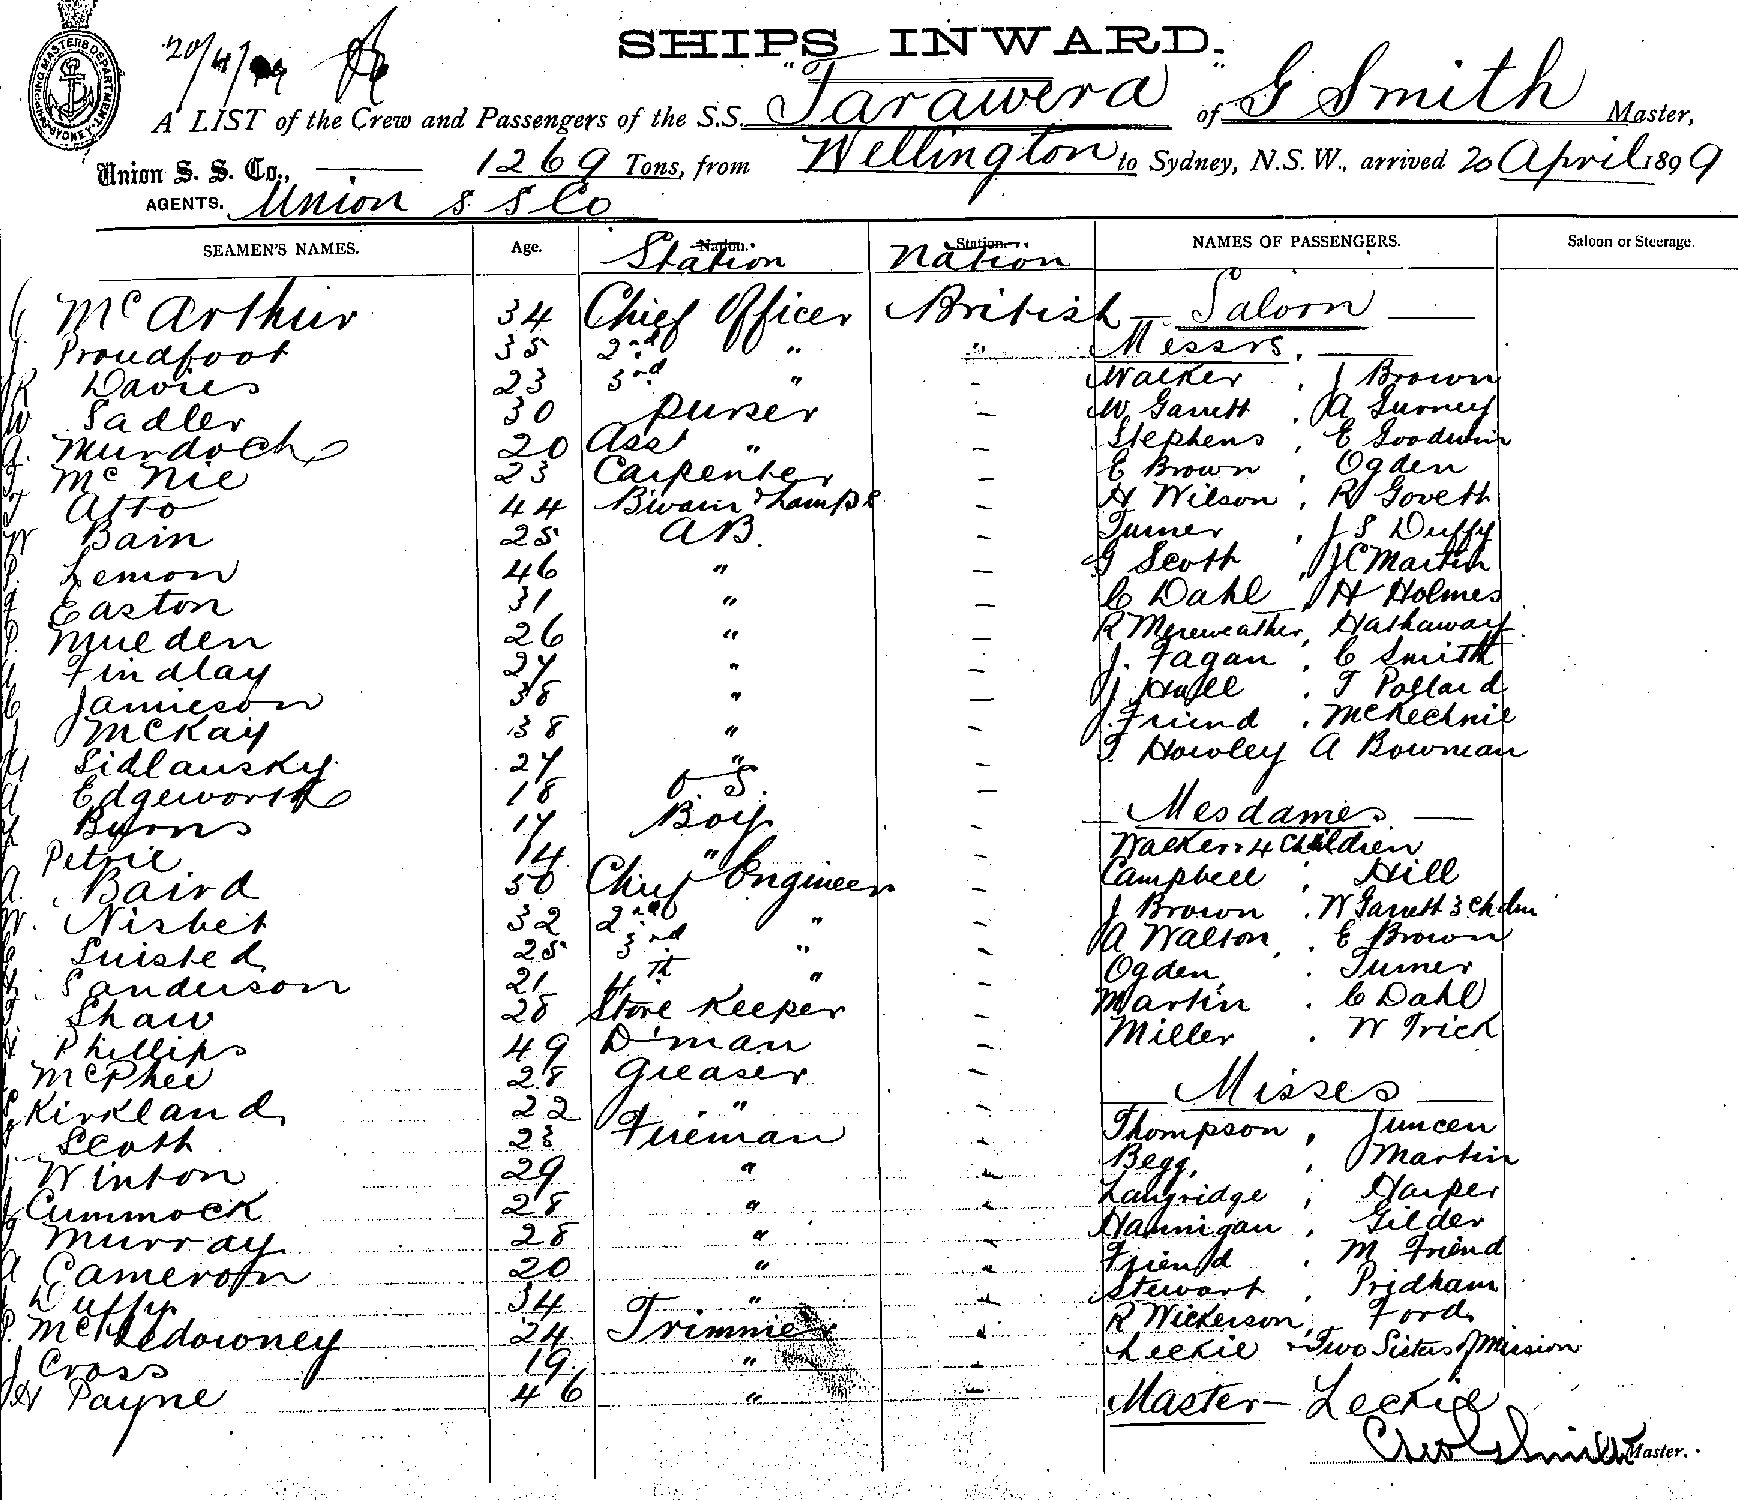 20/4/99
SHIPS INWARD.
A LIST of the Crew and Passengers of the S.S. "Tarawera" of G Smith Master,
Union S. S. Co., 1269 Tons, from Wellington to Sydney, N.S.W., arrived 20 April 1899
AGENTS. Union S S Co
SEAMEN'S NAMES. Age. Nation. Station Station. Nation NAMES OF PASSENGERS. Saloon or Steerage.
McArthur 34 Chief Officer British — Saloon —
J Proudfoot 35 2nd " " Messrs.
R Davies 23 3rd " - Walker , J Brown
W Sadler 30 Purser - W Garrett , A Gurney
A. Murdoch 20 Asst " - Stephens , E Goodwin
McNie 23 Carpenter - E Brown , Ogden
Atto 44 - H Wilson , R Govett
W Bain 25 AB. - Turner , J S Duffy
Lemon 46 " - G Scott , J C Martin
Easton 31 " - C Dahl , H Holmes
P. Mulden 26 " - R Mereweather, Hathaway
Findlay 27 " - J. Fagan , C Smith
C Jamieson 38 " - J Hull . T Pollard
J McKay 38 " - J. Friend . McKechnie
Sidlausky 27 " - T. Howley A Bowman
A Edgeworth 18 O. S. - Mesdames
Byrns 17 Boy - Walker & 4 Children
Petrie 14 " - Campbell , Hill
A. Baird 50 Chief Engineer - J Brown . W Garrett 3 Chdn
W. Nisbet 32 2nd " - A Walton . E Brown
Suisted 25 3rd " - Ogden . Turner
Sanderson 21 4th " - Martin . C Dahl
Shaw 28 Store Keeper - Miller . W Trick
Phillips 49 D'man - Misses
McPhee 28 Greaser - Thompson , Juncen
Kirkland 22 " - Begg, , Martin
Scott 23 Fireman - Langridge , Harper
Winton 29 " " Hannigan , Gilder
J Cummock 28 " " Friend . M Friend
Murray 28 " " Stewart , Pridham
A Cameron 20 " " R Wickerson, Ford
Duffy 34 " " Leckie & Two Sisters of Mission
P. McIledowney 24 Trimmer " Master - Leckie
J Cross 19 " "
H Payne 46 " "
Geo Smith Master.